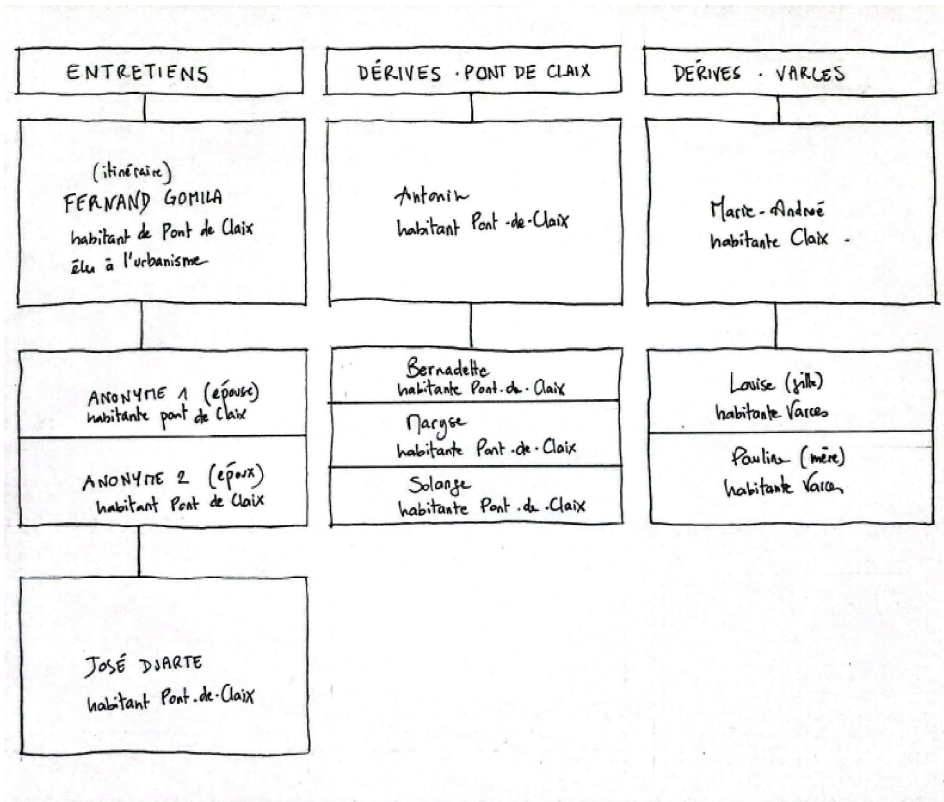 ENTRETIENS
(itinéraire)
FERNAND GOMILA
habitant de Pont de Claix
élu à l'urbanisme
ANONYME 1 (épouse)
habitante pont de Claix
ANONYME 2 (époux)
habitant Pont de Claix
JOSÉ DUARTE
habitant Pont-de-Claix
DÉRIVES . PONT DE CLAIX
Antonin
habitant Pont-de-Claix
Bernadette
habitante Pont-de-Claix
Maryse
habitante Pont-de-Claix
Solange
habitante Pont-de-Claix
DÉRIVES . VARCES
Marie-André
habitante Claix -
Louise (fille)
habitante Varces
Pauline (mère)
habitante Varces